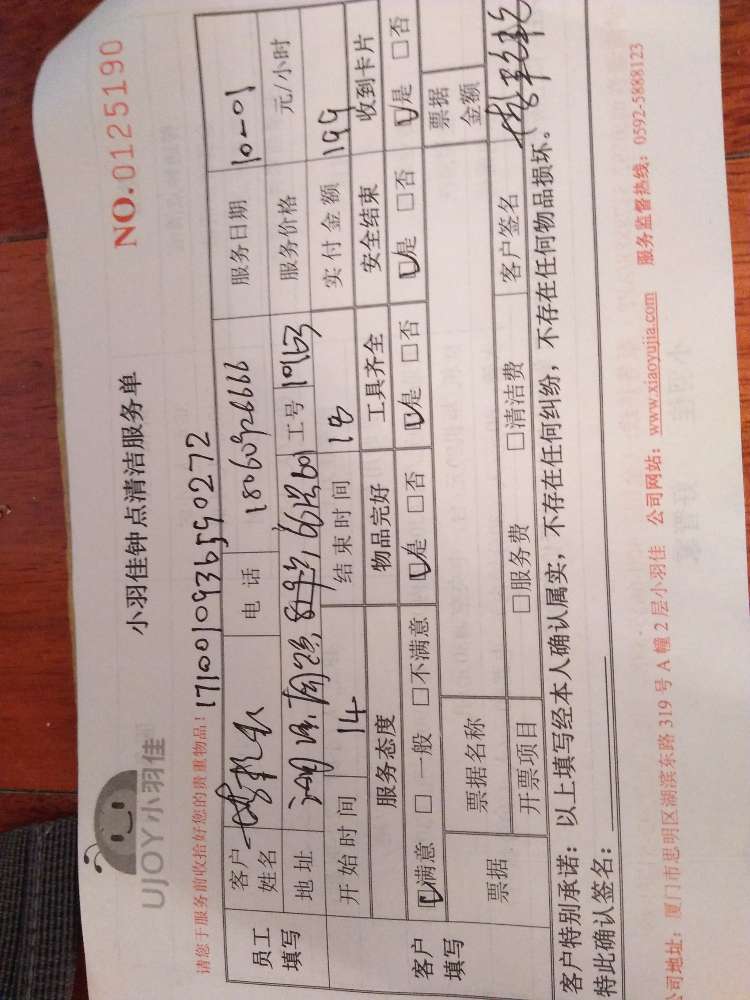 UJOY小羽佳
小羽佳钟点清洁服务单
NO.0125190
请您于服务前收拾好您的贵重物品！
1710010936590272
员工填写
客户姓名
电话
18060926666
服务日期
10-01
地址
工号
10163
服务价格
元/小时
开始时间
14
结束时间
18
实付金额
199
客户填写
服务态度
物品完好
工具齐全
安全结束
收到卡片
☑满意 □一般 □不满意
☑是 □否
☑是 □否
☑是 □否
☑是 □否
票据
票据名称
票据金额
开票项目
□服务费
□清洁费
客户签名
客户特别承诺：以上填写经本人确认属实，不存在任何纠纷，不存在任何物品损坏。
特此确认签名：
公司地址：厦门市思明区湖滨东路 319 号 A 幢 2 层小羽佳 公司网站：www.xiaoyujia.com 服务监督热线：0592-5888123